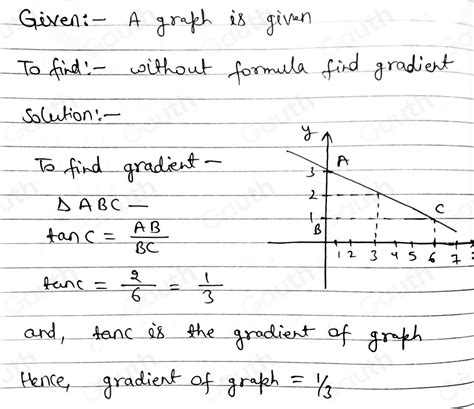 Given:- A graph is given
To find:- without formula find gradient
Solution:-
To find gradient -
Δ ABC -
tan C = AB / BC
tanc = 2/6 = 1/3
y
3 A
2
1 C
B
1 2 3 4 5 6 7
and, tanc is the gradient of graph
Hence, gradient of graph = 1/3
Gauth